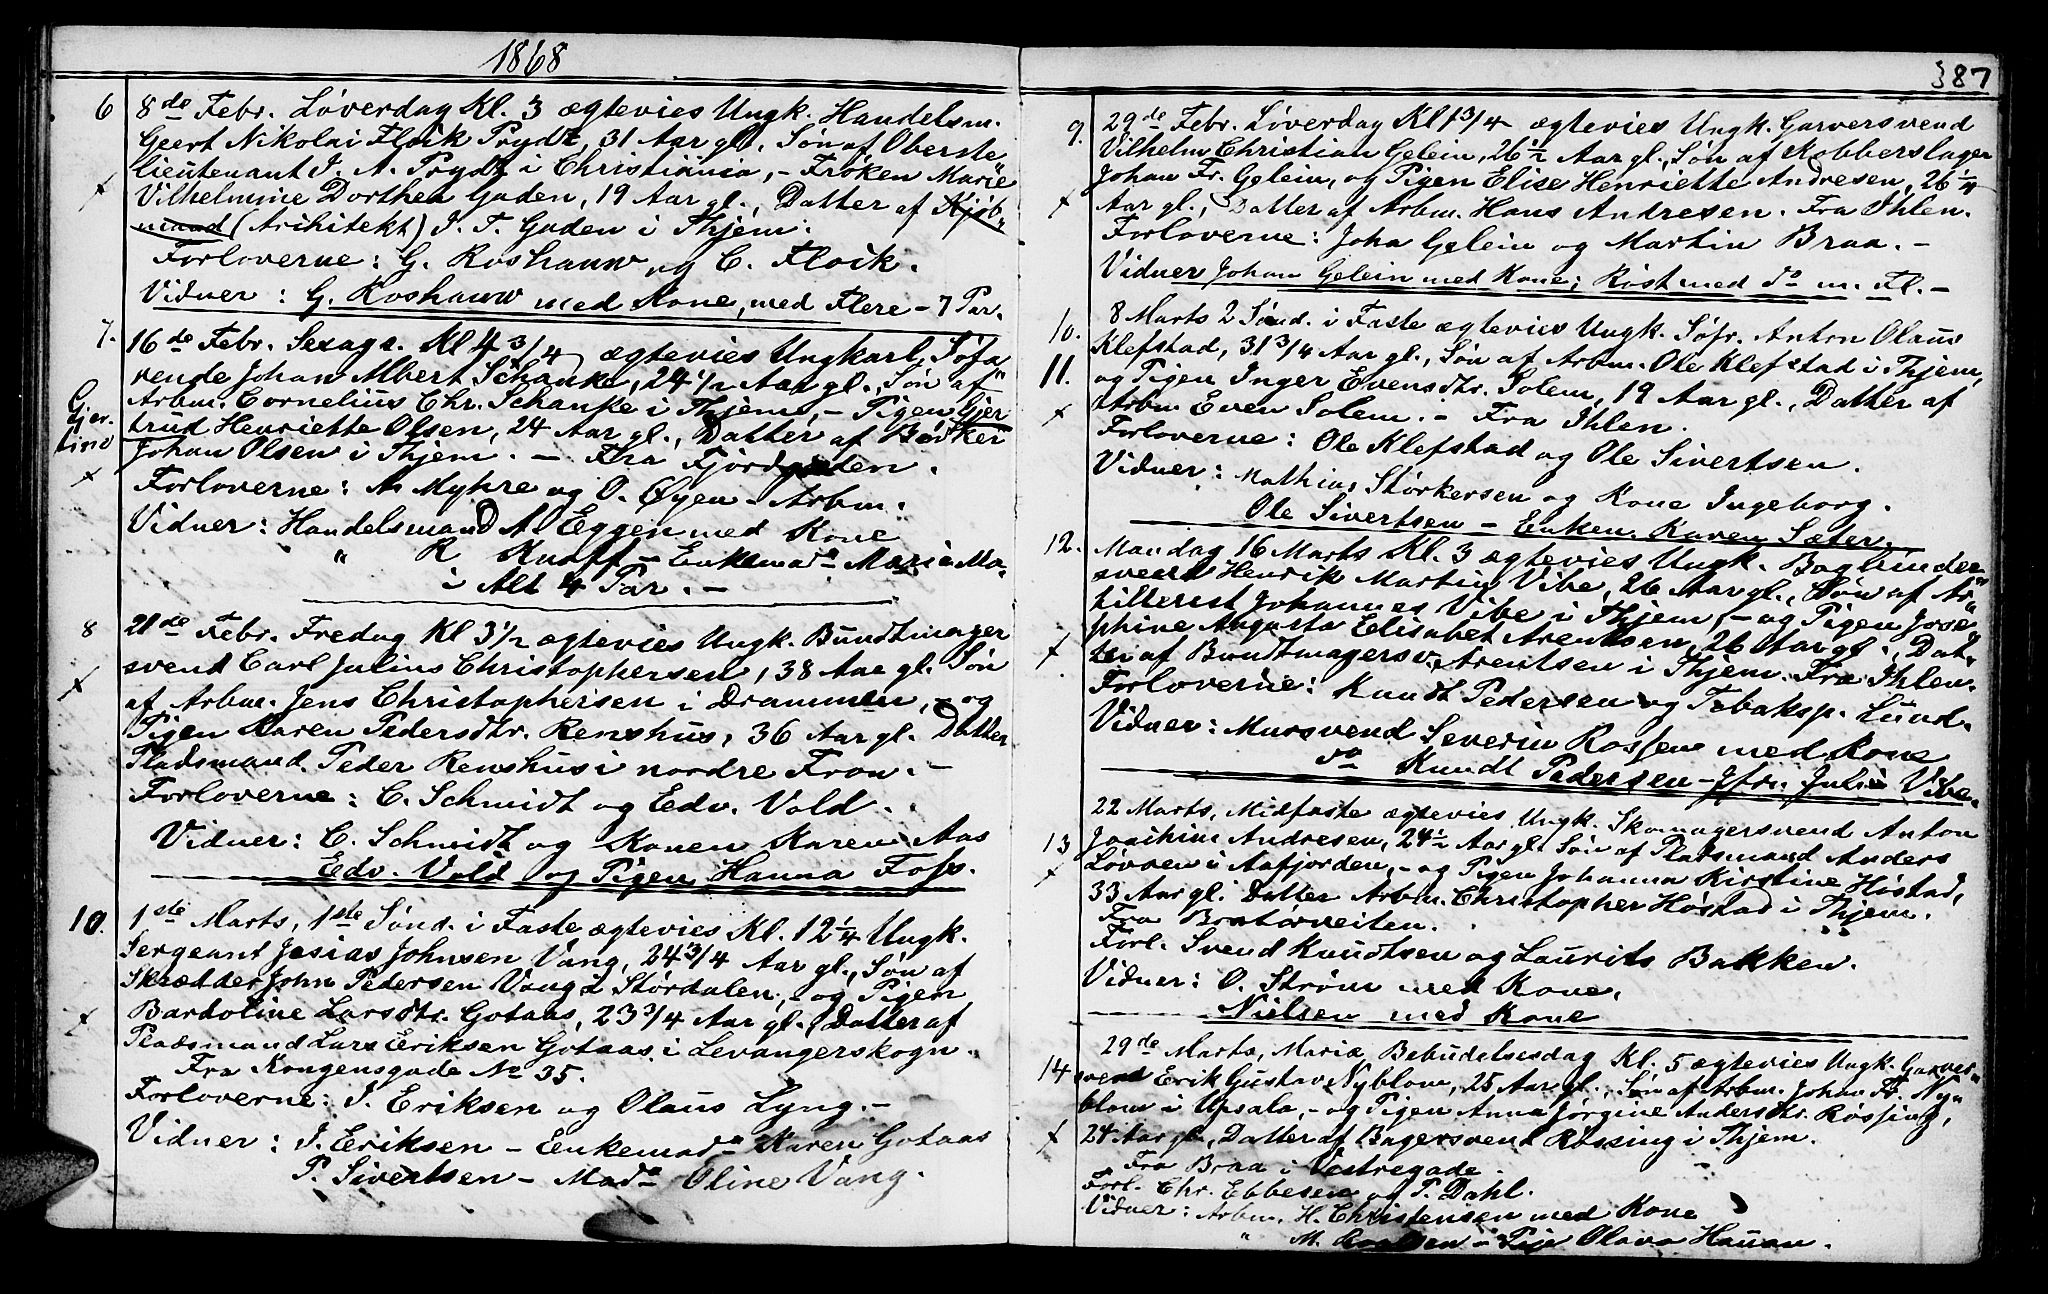 1868
6 8de Febr. Løverdag Kl. 3 ægtevies Ungk. Handelsm.
Geert Nikolai Floik Prydz, 31 Aar gl., Søn af Oberste
lieutenant J. A. Prydz i Christiania, - Frøken Marie
Vilhelmine Dorthea Gaden, 19 Aar gl., Datter af Kjøb-
mand (Architekt) J. T. Gaden i Thjem.
Forloverne: G. Roshauw og C. Floik.
Vidner: G. Roshauw med Kone, med Flere - 7 Par.
7. 16de Febr. Sexages. Kl 4 3/4 ægtevies Ungkarl, Søfa-
rende Johan Albert Schanke, 24 1/2 Aar gl., Søn af
Arbm. Cornelius Chr. Schanke i Thjem, - Pigen Gjer
Gjer-
tine
trud Henriette Olsen, 24 Aar gl., Datter af Bødker
Johan Olsen i Thjem. - Fra Fjordgaden.
Forloverne: A. Myhre og O. Øyen - Arbm.
Vidner: Handelsmand A. Eggen med Kone
" R Knoff - Enkemada Maria Mo.
i Alt 4 Par. -
8 21de Febr. Fredag Kl 3 1/2 ægtevies Ungk. Bundtmager
svend Carl Julius Christophersen, 38 Aar gl. Søn
af Arbm. Jens Christophersen i Drammen, - og
Pigen Karen Pedersdtr. Renshus, 36 Aar gl. Datter
Pladsmand Peder Renshus i nordre Fron. -
Forloverne: C. Schmidt og Edv. Vold.
Vidner: C. Schmidt og Konen Karen Aas
Edv. Vold og Pigen Hanna Foss.
10. 1ste Marts, 1ste Sønd. i Faste ægtevies Kl. 12 1/4 Ungk.
Sergeant Jesias Johnsen Vang, 24 3/4 Aar gl., Søn af
Skrædder John Pedersen Vang i Størdalen, - og Pigen
Bardoline Larsdtr. Gotaas, 23 3/4 Aar gl., Datter af
Pladsmand Lars Eriksen Gotaas i Levangerskogn.
Fra Kongensgade No 35.
Forloverne: J. Eriksen og Olaus Lyng. -
Vidner: J. Eriksen - Enkemada Karen Gotaas
P. Sivertsen - Mada Oline Vang.
387
9. 29de Febr. Løverdag Kl 1 3/4 ægtevies Ungk. Garversvend
Vilhelm Christian Gelein, 26 1/2 Aar gl., Søn af Kobberslager
Johan Fr. Gelein, og Pigen Elise Henriette Andresen, 26 1/4
Aar gl., Datter af Arbm. Hans Andresen. Fra Ihlen.
Forloverne: Joha Gelein og Martin Braa. -
Vidner Johan Gelein med Kone; Røst med do m. Fl. -
10. 8 Marts 2 Sønd. i Faste ægtevies Ungk. Søfr. Anton Olaus
Klefstad, 31 3/4 Aar gl., Søn af Arbm. Ole Klefstad i Thjem,
11. og Pigen Inger Evensdtr. Solem, 19 Aar gl., Datter af
Arbm Even Solem. - Fra Ihlen.
Forloverne: Ole Klefstad og Ole Sivertsen.
Vidner: Mathias Størkersen og Kone Ingeborg.
Ole Sivertsen - Enken Karen Sæter.
12. Mandag 16 Marts Kl. 3 ægtevies Ungk. Bogbinder-
svend Henrik Martin Vibe, 26 Aar gl., Søn af Ar-
tillerist Johannes Vibe i Thjem, - og Pigen Jose-
phine Augusta Elisabet Arentsen, 26 Aar gl., Dat-
ter af Bundtmagersv. Arentsen i Thjem. Fra Ihlen.
Forloverne: Knudt Pedersen og Tobaksp. Lund.
Vidner: Mursvend Severin Rossen med Kone
do Knudt Pedersen - Jfr. Julie Vibe.
22 Marts, Midfaste ægtevies Ungk. Skomagersvend Anton
13 Joachim Andresen, 24 1/2 Aar gl. Søn af Pladsmand Anders
Løvøen i Aafjorden, - og Pigen Johanna Kirstine Høstad,
33 Aar gl. Datter Arbm. Christopher Høstad i Thjem.
Fra Bratørveiten.
Forl. Svend Knudtsen og Laurits Bakken.
Vidner: O. Strøm med Kone,
Nielsen med Kone
29de Marts, Mariæ Bebudelsesdag Kl. 5 ægtevies Ungk. Garver-
14 svend Erik Gustav Nyblom, 25 Aar gl., Søn af Arbm. Johan Fr. Ny-
blom i Upsala, - og Pigen Anna Jørgine Andersdtr. Røssing,
24 Aar gl., Datter af Bagersvend Røssing i Thjem.
Fra Braa i Vestregade.
Forl. Chr. Ebbesen og P. Dahl.
Vidner: Arbm. H. Christensen med Kone
" M. - Pige Olava Hauan.